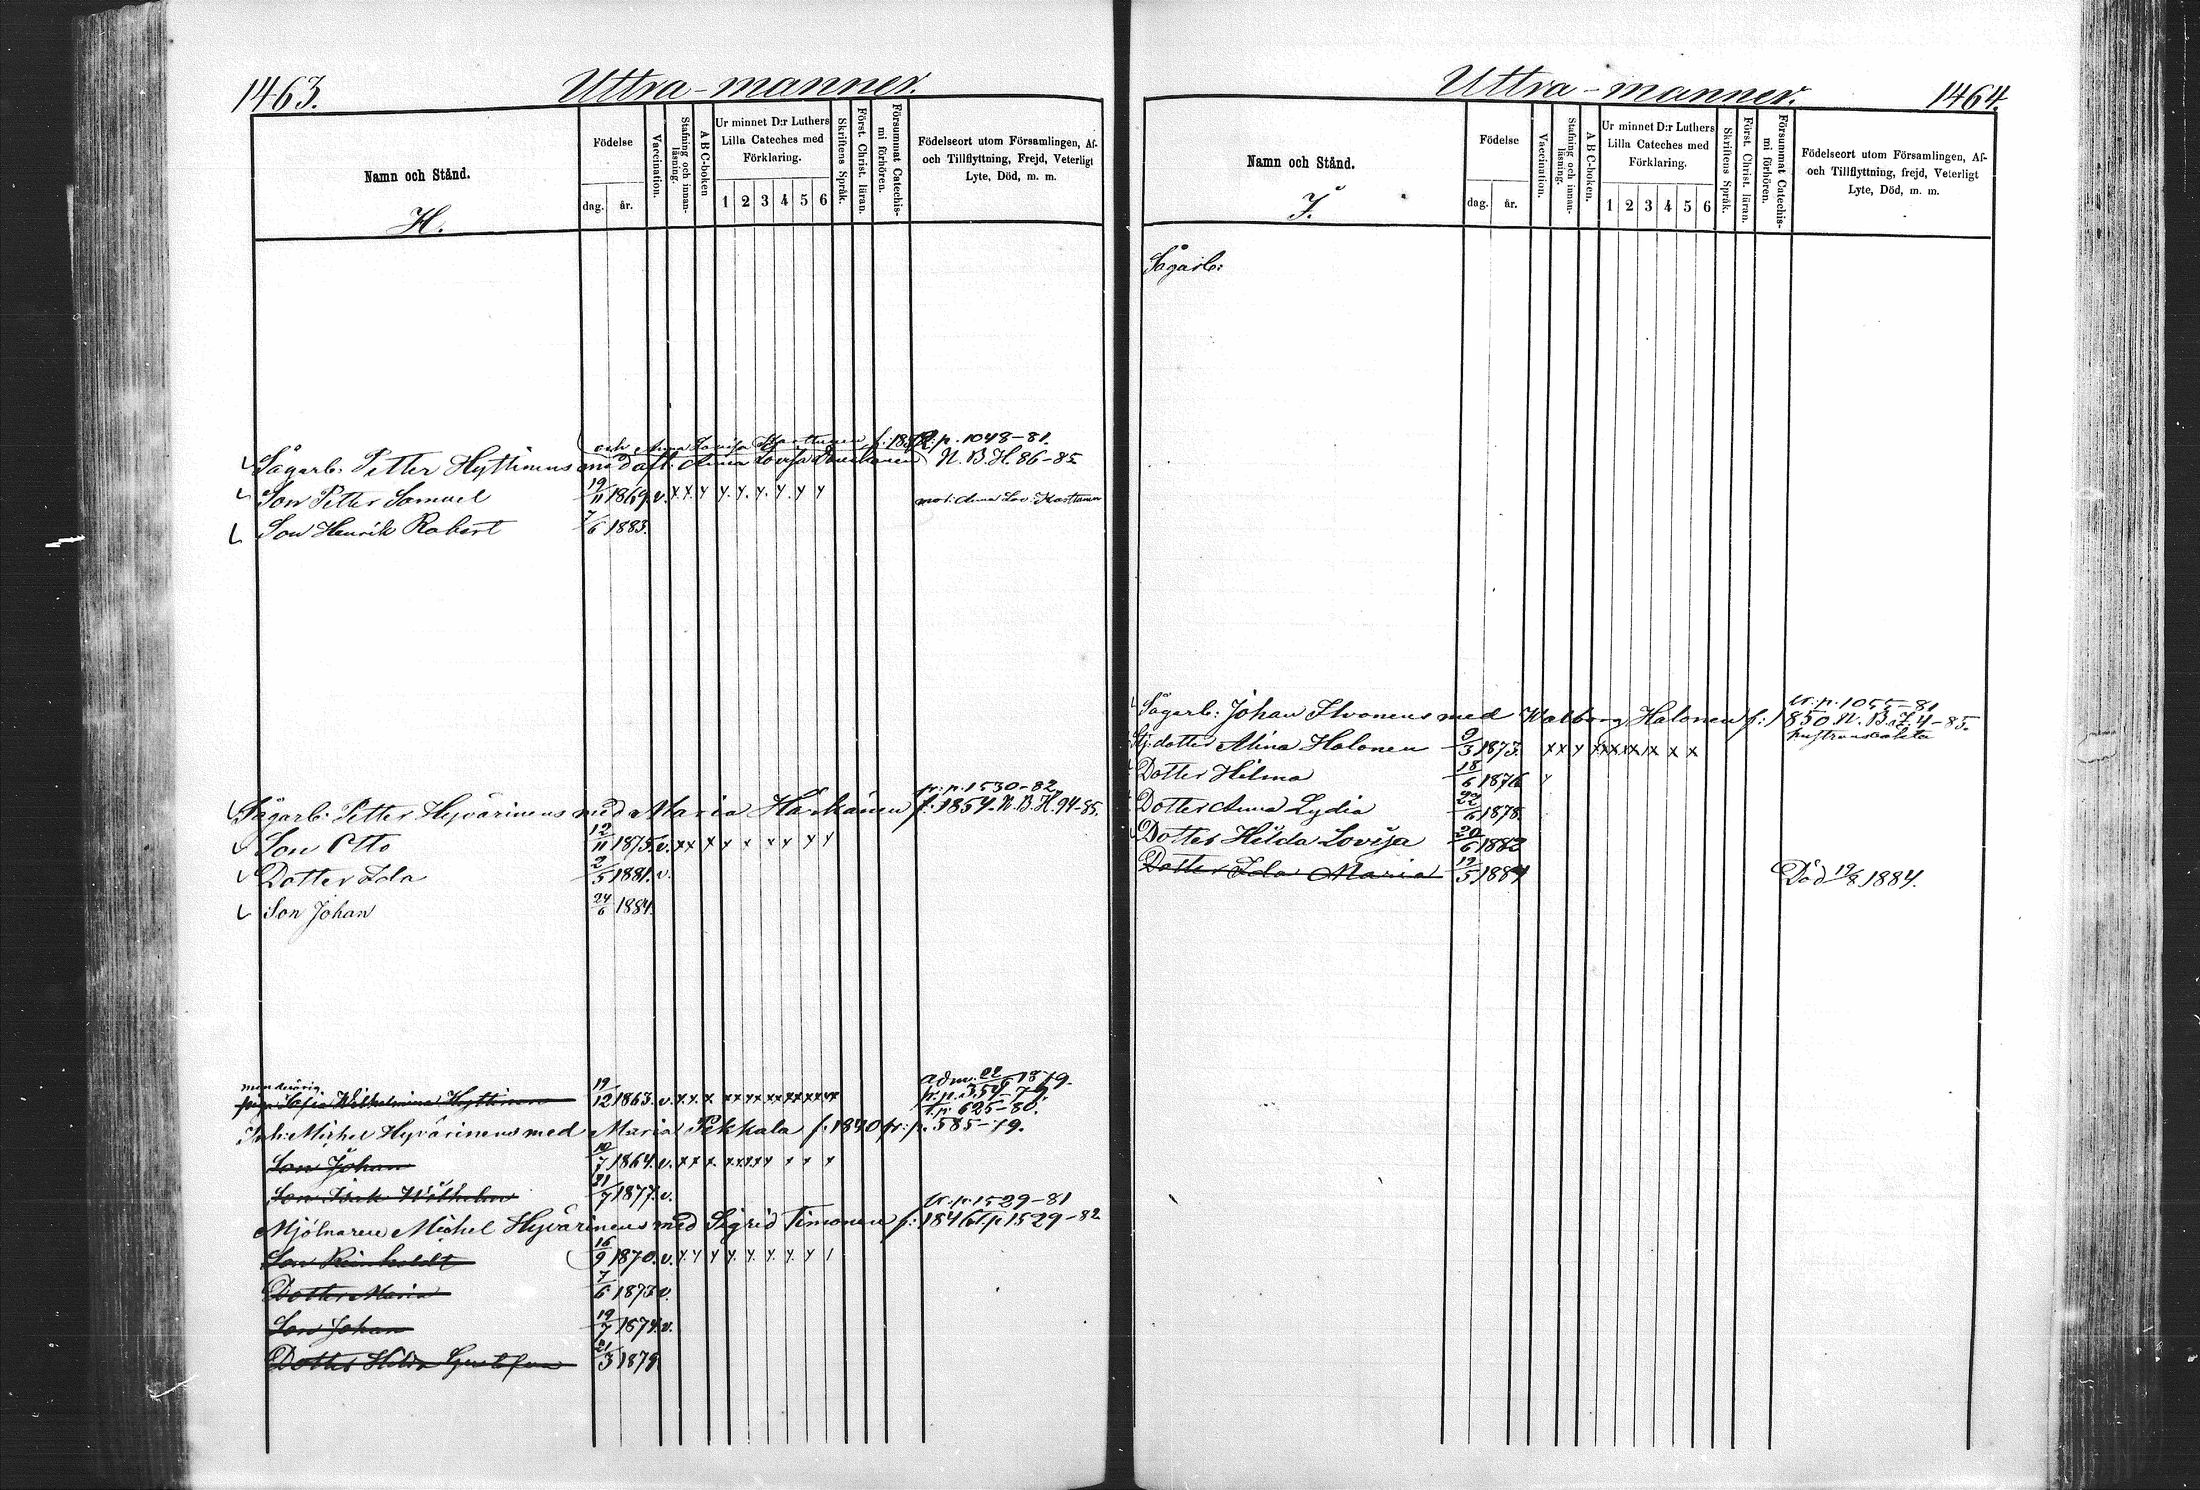 1463.
Uttra-manner.
Namn och Stånd.
H.
Födelse
dag. år.
Vaccination.
Stafning och innan-läsning.
A B C-boken
Ur minnet D:r Luthers
Lilla Cateches med
Förklaring.
1 2 3 4 5 6
Skriftens Språk.
Först. Christ. läran.
Försummat Catechis-
mi förhören.
Födelseort utom Församlingen, Af-
och Tillflyttning, Frejd, Veterligt
Lyte, Död, m. m.
och Anna Lovisa Karttunen f: p. 1048-81.
Sågarb: Petter Hyttinens med afl. Anna Lovisa N. B. H. 86-85
Son Petter Samuel 19/11 1869. v. x x y y. y. y. y. y y mod: Anna Lov. Karttunen
Son Henrik Robert 7/6 1883.
fr: p. 1530-82
Sågarb: Petter Hyvärinens med Maria Härkänen f: 1854. N. B. H. 94-85.
Son Otto 12/11 1875. v. x x x y x x x y y
Dotter Ida 2/5 1881. v.
Son Johan 24/6 1884.
Sofia Wilhelmina Hyttinen 19/12 1863. v. x x. x xx xx xx xx xx xx
p. 359-79.
t. p. 625-80.
Inh: Michel Hyvärinens med Maria Pekkala f. 1840 fr: p. 585-79.
Son Johan 10/7 1864. v. x x x. x x x x x x x x
Son Wilhelm 31/7 1877. v.
fr: p. 1529-81
Mjölnaren Michel Hyvärinens med Sigrid Timonen f: 1846 t. p 1529-82
Son Reinholdt 16/9 1870. v. y y y y. y. y. y. y /
Dotter Maria 7/6 1873 v.
Son Johan 19/7 1874. v.
Dotter Hilda Gustafva 21/3 1879
Uttra-manner.
1464.
Namn och Stånd.
I.
Födelse
dag. år.
Vaccination.
Stafning och innan-läsning.
A B C-boken.
Ur minnet D:r Luthers
Lilla Cateches med
Förklaring.
1 2 3 4 5 6
Skriftens Språk.
Först. Christ. läran.
Försummat Catechis-
mi förhören.
Födelseort utom Församlingen, Af-
och Tillflyttning, frejd, Veterligt
Lyte, Död, m. m.
Sågarb:
fr: p. 1055-81
Sågarb: Johan Ilvonens med Walborg Halonen f: 1850. N. B. I. 4-85.
dotter Alina Halonen 9/3 1873. x x y xx xx x x x x
Dotter Hilma 18/6 1876 y
Dotter Anna Lydia 22/6 1878.
Dotter Hilda Lovisa 20/6 1882
Dotter Ida Maria 12/5 1884 Död 19/8 1884.